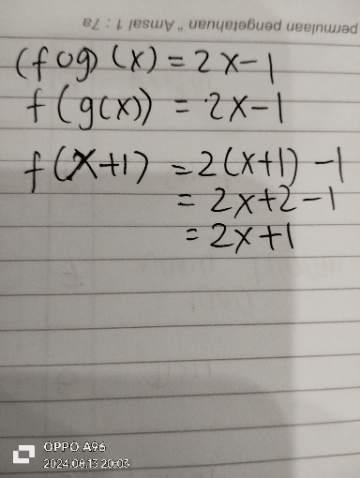 permulaan pengetahuan " Amsal 1 : 7a
(fog)(x) = 2x-1
f(g(x)) = 2x-1
f(x+1) = 2(x+1) -1
= 2x+2-1
= 2x+1
OPPO A96
2024.08.13 20:03